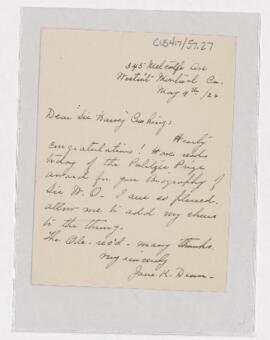 CUS417/57.27
345 Metcalfe Ave
Westmt Montreal Can.
May 4th/26
Dear Sir Harvey Cushing:
Hearty
Congratulations! Have read
today of the Pulitzer Prize
award for your biography of
Sir W. O. I am so pleased.
allow me to add my cheers
to the throng.
The rec'd - many thanks.
Very sincerely
Jane K. Dunn -